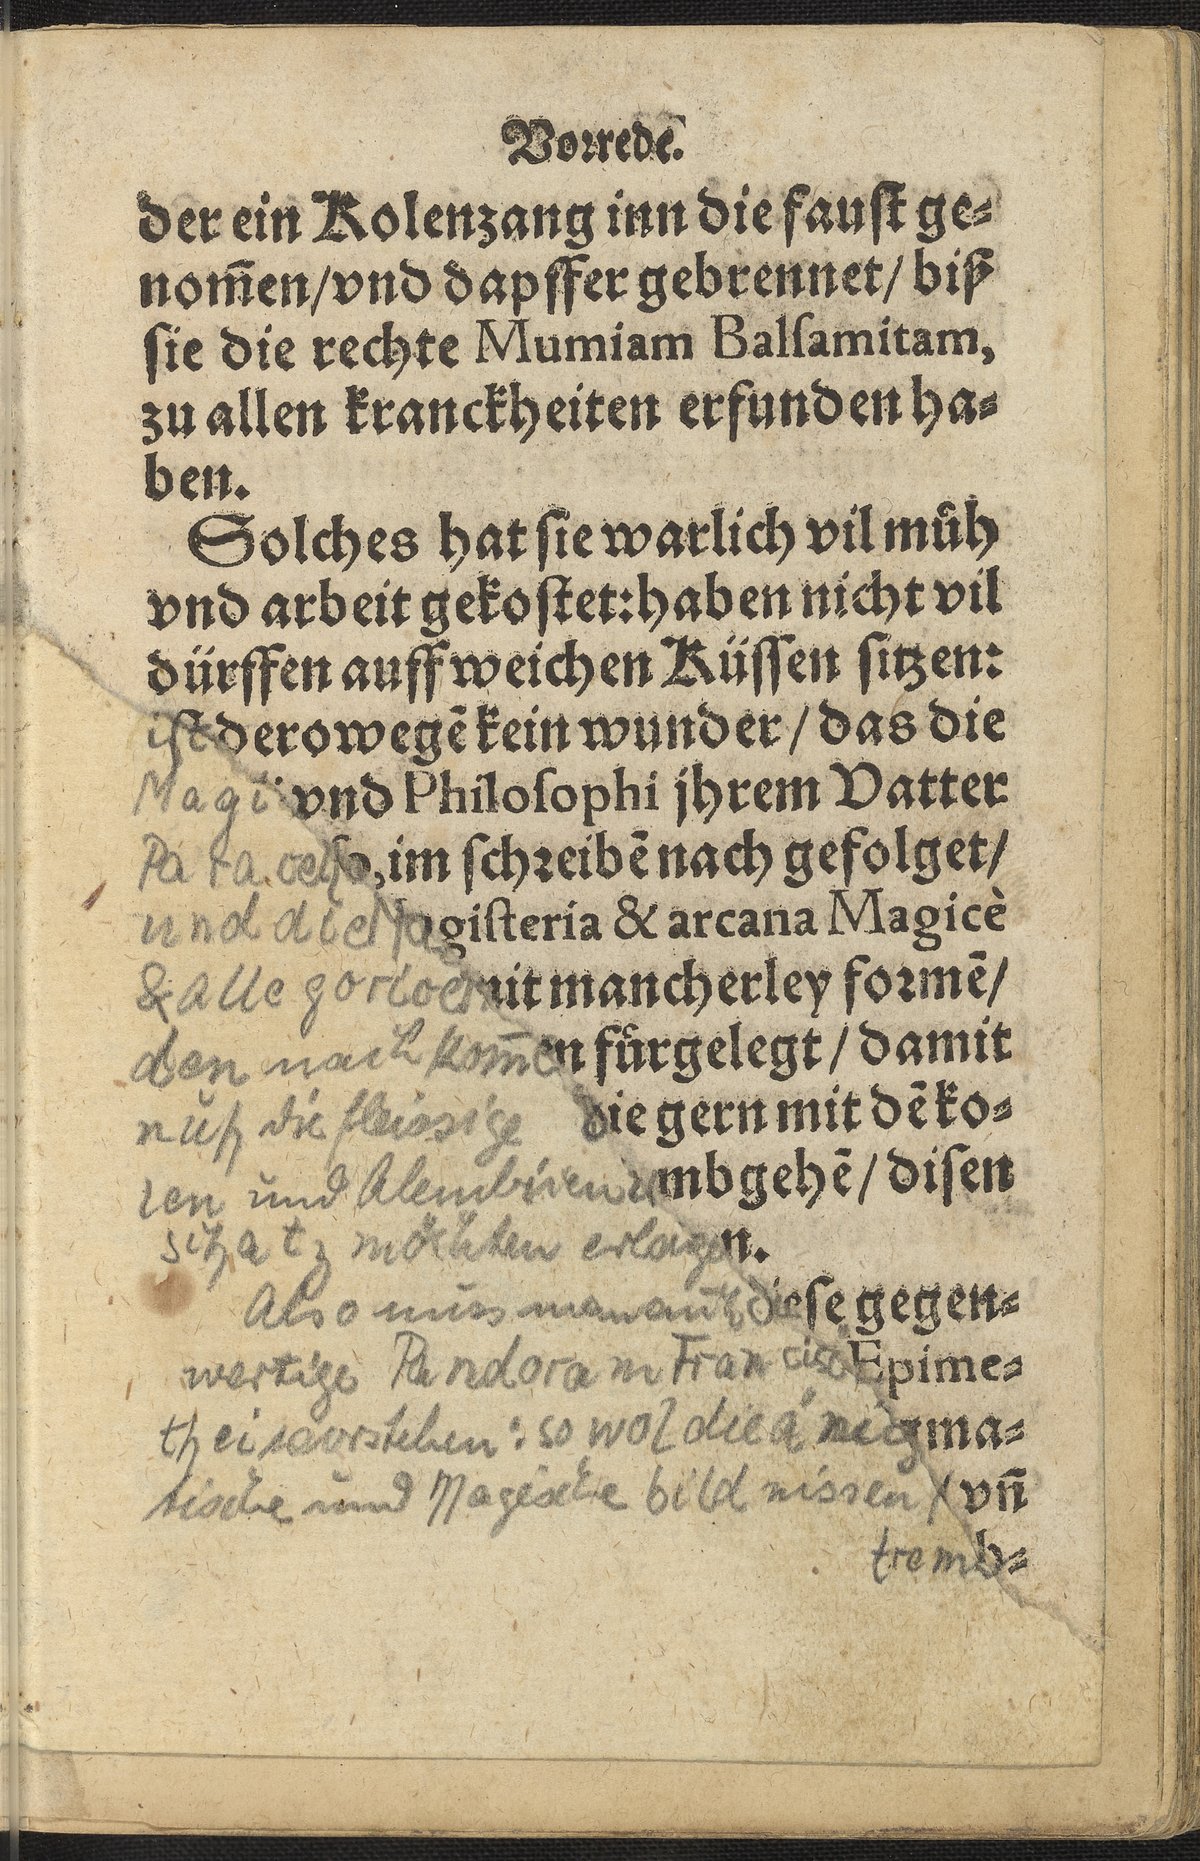 Vorrede.
der ein Kolenzang inn die faust ge⸗
nom̃en/vnd dapffer gebrennet/ biß
sie die rechte Mumiam Balsamitam,
zu allen kranckheiten erfunden ha⸗
ben.
Solches hat sie warlich vil muͤh
vnd arbeit gekostet: haben nicht vil
dürffen auff weichen Küssen sitzen:
ist derowegẽ kein wunder/ das die
Magi vnd Philosophi jhrem Vatter
Paracelso, im schreibẽ nach gefolget/
und die Magisteria & arcana Magicè
& allegoricè mit mancherley formẽ/
den nachkom̃en fuͤrgelegt/ damit
nuhr die fleissige die gern mit dẽ ko⸗
len und Alembicien umbgehẽ/ disen
schatz möchten erlagen.
Also muss man auch diese gegen⸗
wertige Pandoram Francisci Epime⸗
thei verstehen: so wol die änigma⸗
tische und Magische bildnissen/ vñ
tremb⸗